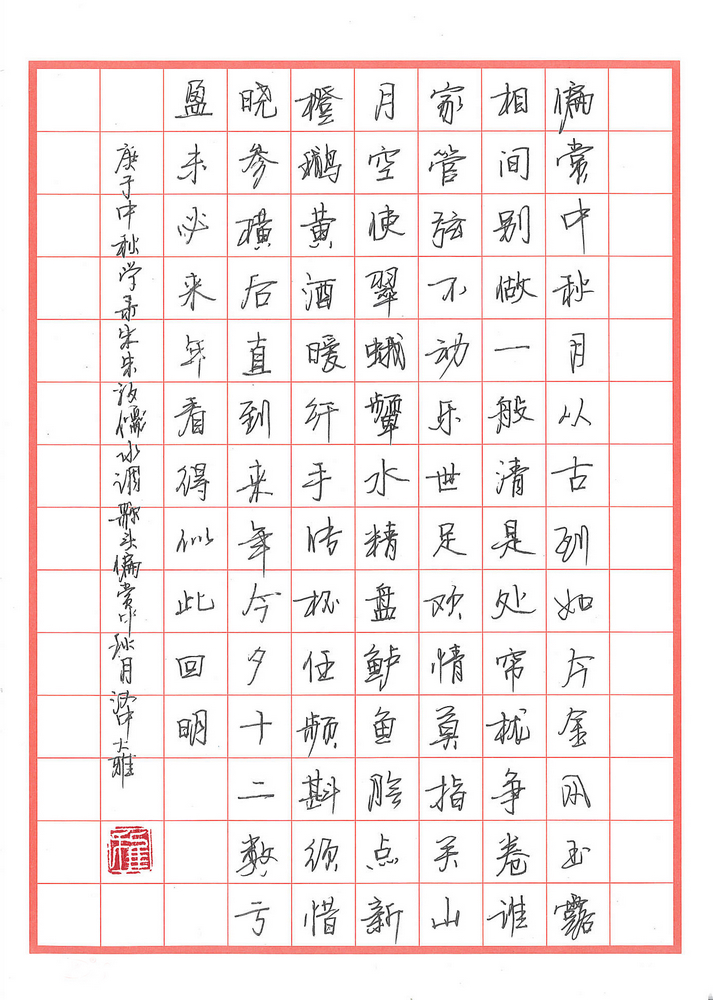 偏赏中秋月从古到如今金风玉露
相间别做一般清是处帘栊争卷谁
家管弦不动乐世足欢情莫指关山
月空使翠蛾颦水精盘鲈鱼脍点新
橙鹅黄酒暖纤手传杯任频斟须惜
晓参横后直到来年今夕十二数亏
盈未必来年看得似此回明
庚子中秋学录宋朱敦儒水调歌头偏赏中秋月中大雅
雅